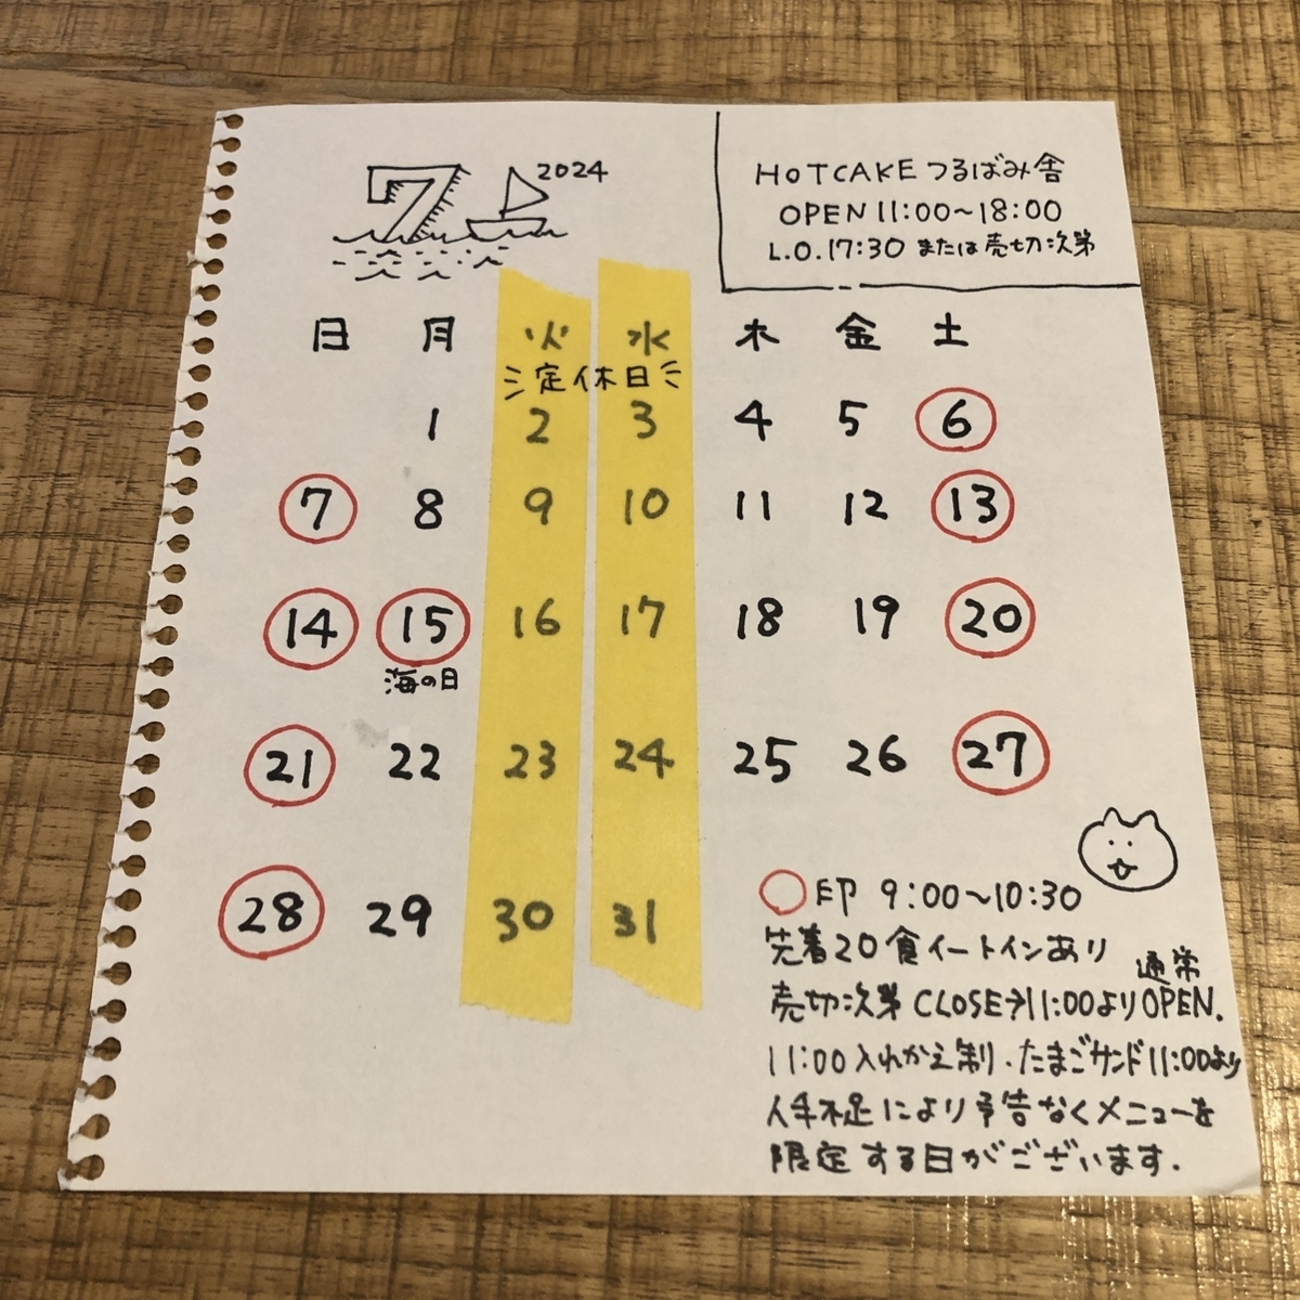 7 2024
HOTCAKE つるばみ舎
OPEN 11:00〜18:00
L.O.17:30 または売切次第
日 月 火 水 木 金 土
定休日
1 2 3 4 5 6
7 8 9 10 11 12 13
14 15 16 17 18 19 20
海の日
21 22 23 24 25 26 27
28 29 30 31
○印 9:00〜10:30
先着20食イートインあり
通常
売切次第 CLOSE→11:00よりOPEN.
11:00入れかえ制.たまごサンド11:00より
人手不足により予告なくメニューを
限定する日がございます.